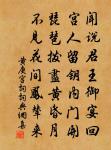 聞說君王御宴回
宮人留鑰內門開
琵琶撥盡黃昏月
不見花間鳳輦來
黃庚宮詞詞典網集